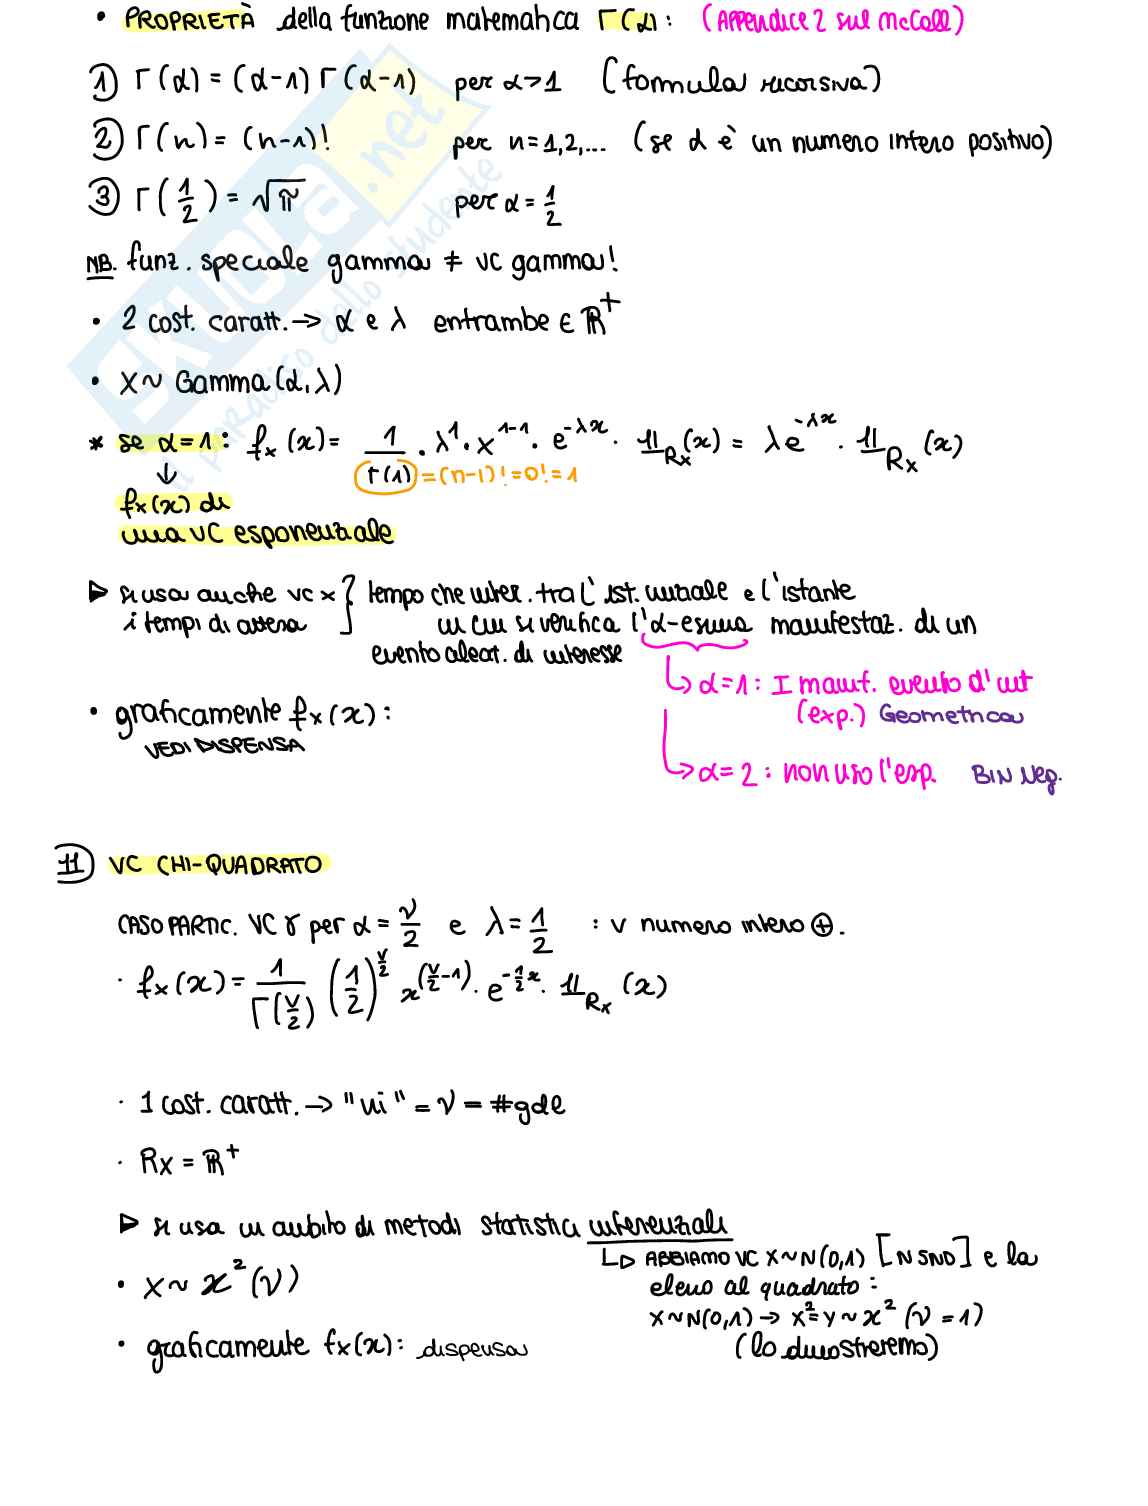 • PROPRIETÀ della funzione matematica Γ(α): (APPendice 2 sul McColl)
① Γ(α) = (α-1) Γ(α-1) per α>1 (formula ricorsiva)
② Γ(n) = (n-1)! per n=1,2,... (se α è un numero intero positivo)
③ Γ(1/2) = √π per α = 1/2
NB. funz. speciale gamma ≠ VC gamma!
• 2 cost. caratt. → α e λ entrambe ∈ ℝ⁺
• X ~ Gamma(α,λ)
* se α=1: fx(x) = 1/Γ(1) · λ¹ · x¹⁻¹ · e^-λx · 𝟙Rx(x) = λe^-λx · 𝟙Rx(x)
Γ(1) = (n-1)! = 0! = 1
↓
fx(x) di
una VC esponenziale
▷ si usa anche VC x } tempo che inter. tra l'ist. iniziale e l'istante
i tempi di attesa } in cui si verifica l'α-esima manifestaz. di un
evento aleat. di interesse
↳ α=1: I manif. evento d'int
(exp.) Geometrica
• graficamente fx(x):
VEDI DISPENSA
↳ α=2: non uso l'esp. BIN Neg.
⑪ VC CHI-QUADRATO
CASO PARTIC. VC γ per α = ν/2 e λ = 1/2 : ν numero intero ⊕.
· fx(x) = 1/Γ(ν/2) (1/2)^ν/2 x^(ν/2-1) · e^-1/2x · 𝟙Rx(x)
· 1 cost. caratt. → "ni" = ν = #gdl
· Rx = ℝ⁺
▷ si usa in ambito di metodi statistici inferenziali
↳ ABBIAMO VC X~N(0,1) [N SND] e la
elevo al quadrato:
X~N(0,1) → X²=Y~χ²(ν=1)
(lo dimostreremo)
• X ~ χ²(ν)
• graficamente fx(x): dispensa
SKUOLA.net
il paradiso dello studente